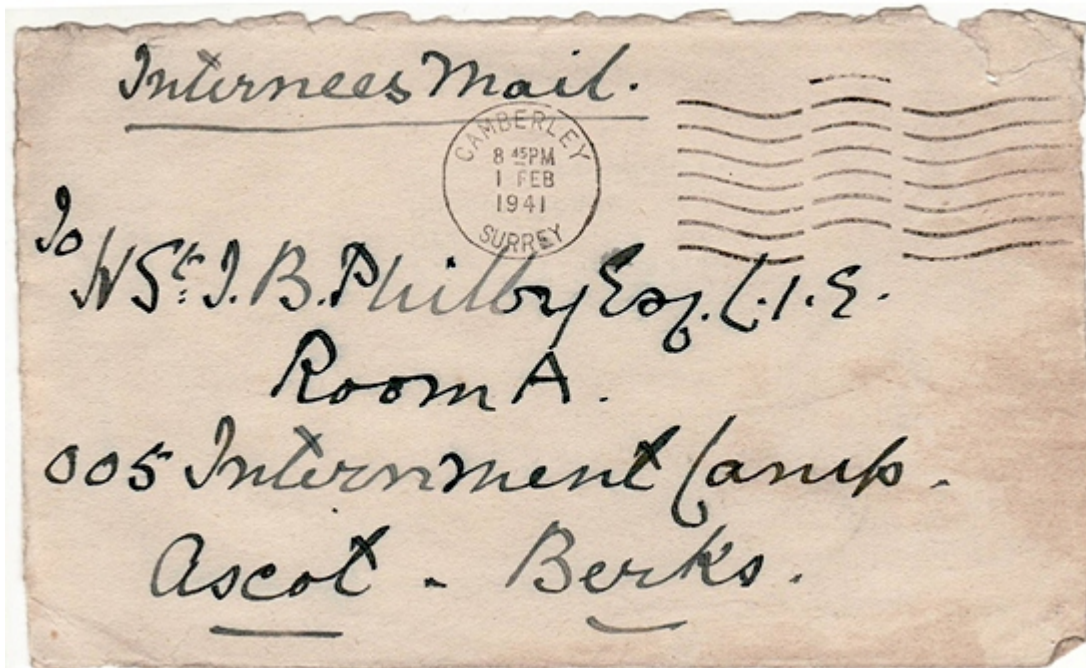 Internees Mail.
CAMBERLEY
8 45 PM
1 FEB
1941
SURREY
To
H St: J. B. Philby Esq. C.I.E.
Room A.
005 Internment Camp.
Ascot - Berks.